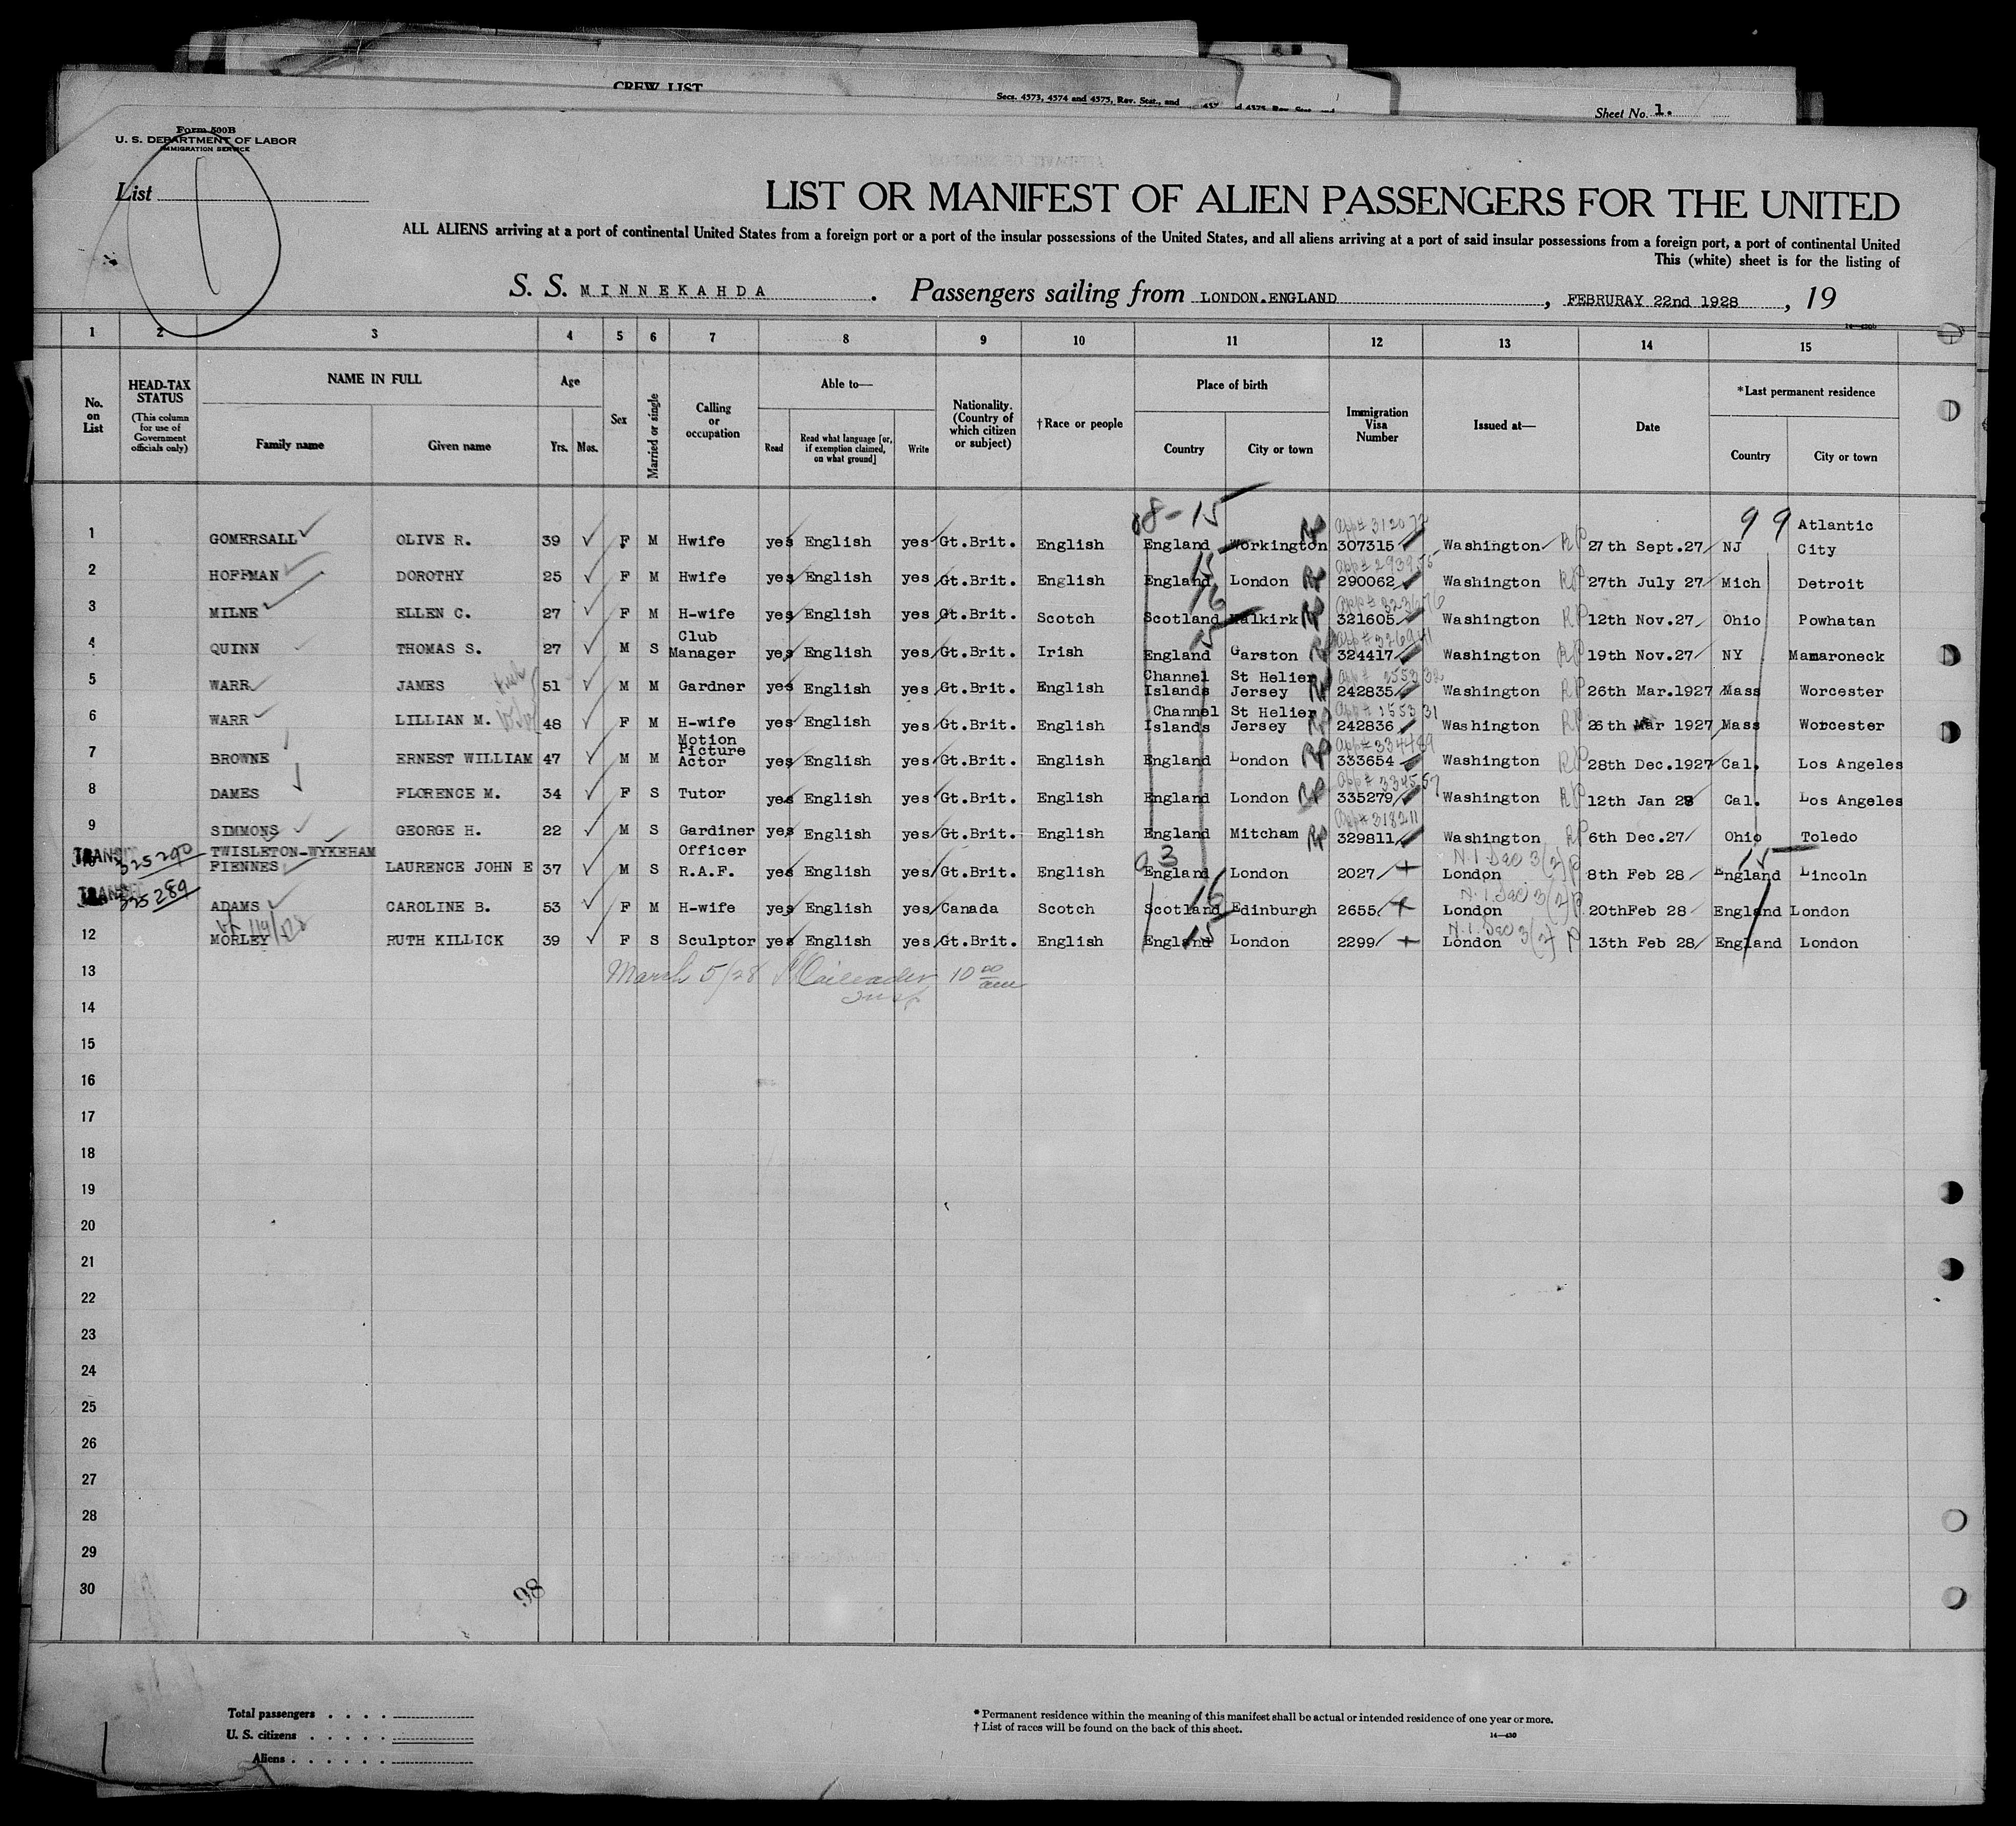 CREW LIST
Secs. 4573, 4574 and 4575, Rev. Stat., and
Sheet No. 1.
Form 500B
U. S. DEPARTMENT OF LABOR
IMMIGRATION SERVICE
List
1
LIST OR MANIFEST OF ALIEN PASSENGERS FOR THE UNITED
ALL ALIENS arriving at a port of continental United States from a foreign port or a port of the insular possessions of the United States, and all aliens arriving at a port of said insular possessions from a foreign port, a port of continental United
This (white) sheet is for the listing of
S. S. MINNEKAHDA . Passengers sailing from LONDON.ENGLAND , FEBRURAY 22nd 1928 , 19
1 2 3 4 5 6 7 8 9 10 11 12 13 14 15
No. on List
HEAD-TAX STATUS (This column for use of Government officials only)
NAME IN FULL
Family name Given name
Age
Yrs. Mos.
Sex
Married or single
Calling or occupation
Able to—
Read Read what language [or, if exemption claimed, on what ground] Write
Nationality. (Country of which citizen or subject)
†Race or people
Place of birth
Country City or town
Immigration Visa Number
Issued at—
Date
*Last permanent residence
Country City or town
98-15 99
1 GOMERSALL OLIVE R. 39 F M Hwife yes English yes Gt.Brit. English England Workington RP App# 312072 307315 Washington RP 27th Sept.27 NJ Atlantic City
2 HOFFMAN DOROTHY 25 F M Hwife yes English yes Gt.Brit. English England 15 London RP 290062 Washington RP 27th July 27 Mich Detroit
3 MILNE ELLEN C. 27 F M H-wife yes English yes Gt.Brit. Scotch Scotland 16 RP App# 323676 321605 Washington RP 12th Nov.27 Ohio Powhatan
4 QUINN THOMAS S. 27 M S Club Manager yes English yes Gt.Brit. Irish England 15 Garston RP App# 326941 324417 Washington RP 19th Nov.27 NY Mamaroneck
5 WARR JAMES 51 M M Gardner yes English yes Gt.Brit. English Channel Islands St Helier Jersey RP 242835 Washington RP 26th Mar.1927 Mass Worcester
6 WARR LILLIAN M. 48 F M H-wife yes English yes Gt.Brit. English Channel Islands St Helier Jersey RP 242836 Washington RP 26th Mar 1927 Mass Worcester
7 BROWNE ERNEST WILLIAM 47 M M Motion Picture Actor yes English yes Gt.Brit. English England London RP App# 334489 333654 Washington RP 28th Dec.1927 Cal. Los Angeles
8 DAMES FLORENCE M. 34 F S Tutor yes English yes Gt.Brit. English England London RP App# 334557 335279 Washington RP 12th Jan 28 Cal. Los Angeles
9 SIMMONS GEORGE H. 22 M S Gardiner yes English yes Gt.Brit. English England Mitcham RP App# 318211 329811 Washington RP 6th Dec.27 Ohio Toledo
TRANSIT 325290 TWISLETON-WYKEHAM FIENNES LAURENCE JOHN E 37 M S Officer R.A.F. yes English yes Gt.Brit. English England London 2027 London N.I. Sec 3(2) P 8th Feb 28 England 15 Lincoln
TRANSIT 325289 ADAMS CAROLINE B. 53 F M H-wife yes English yes Canada Scotch Scotland 16 Edinburgh 2655 London N.I. Sec 3(2) P 20thFeb 28 England London
12 MORLEY RUTH KILLICK 39 F S Sculptor yes English yes Gt.Brit. English England 15 London 2299 London N.I. Sec 3(2) P 13th Feb 28 England London
13 March 5/28 10 00 am
14
15
16
17
18
19
20
21
22
23
24
25
26
27
28
29
30
98
Total passengers
U. S. citizens
Aliens
* Permanent residence within the meaning of this manifest shall be actual or intended residence of one year or more.
† List of races will be found on the back of this sheet.
14—430